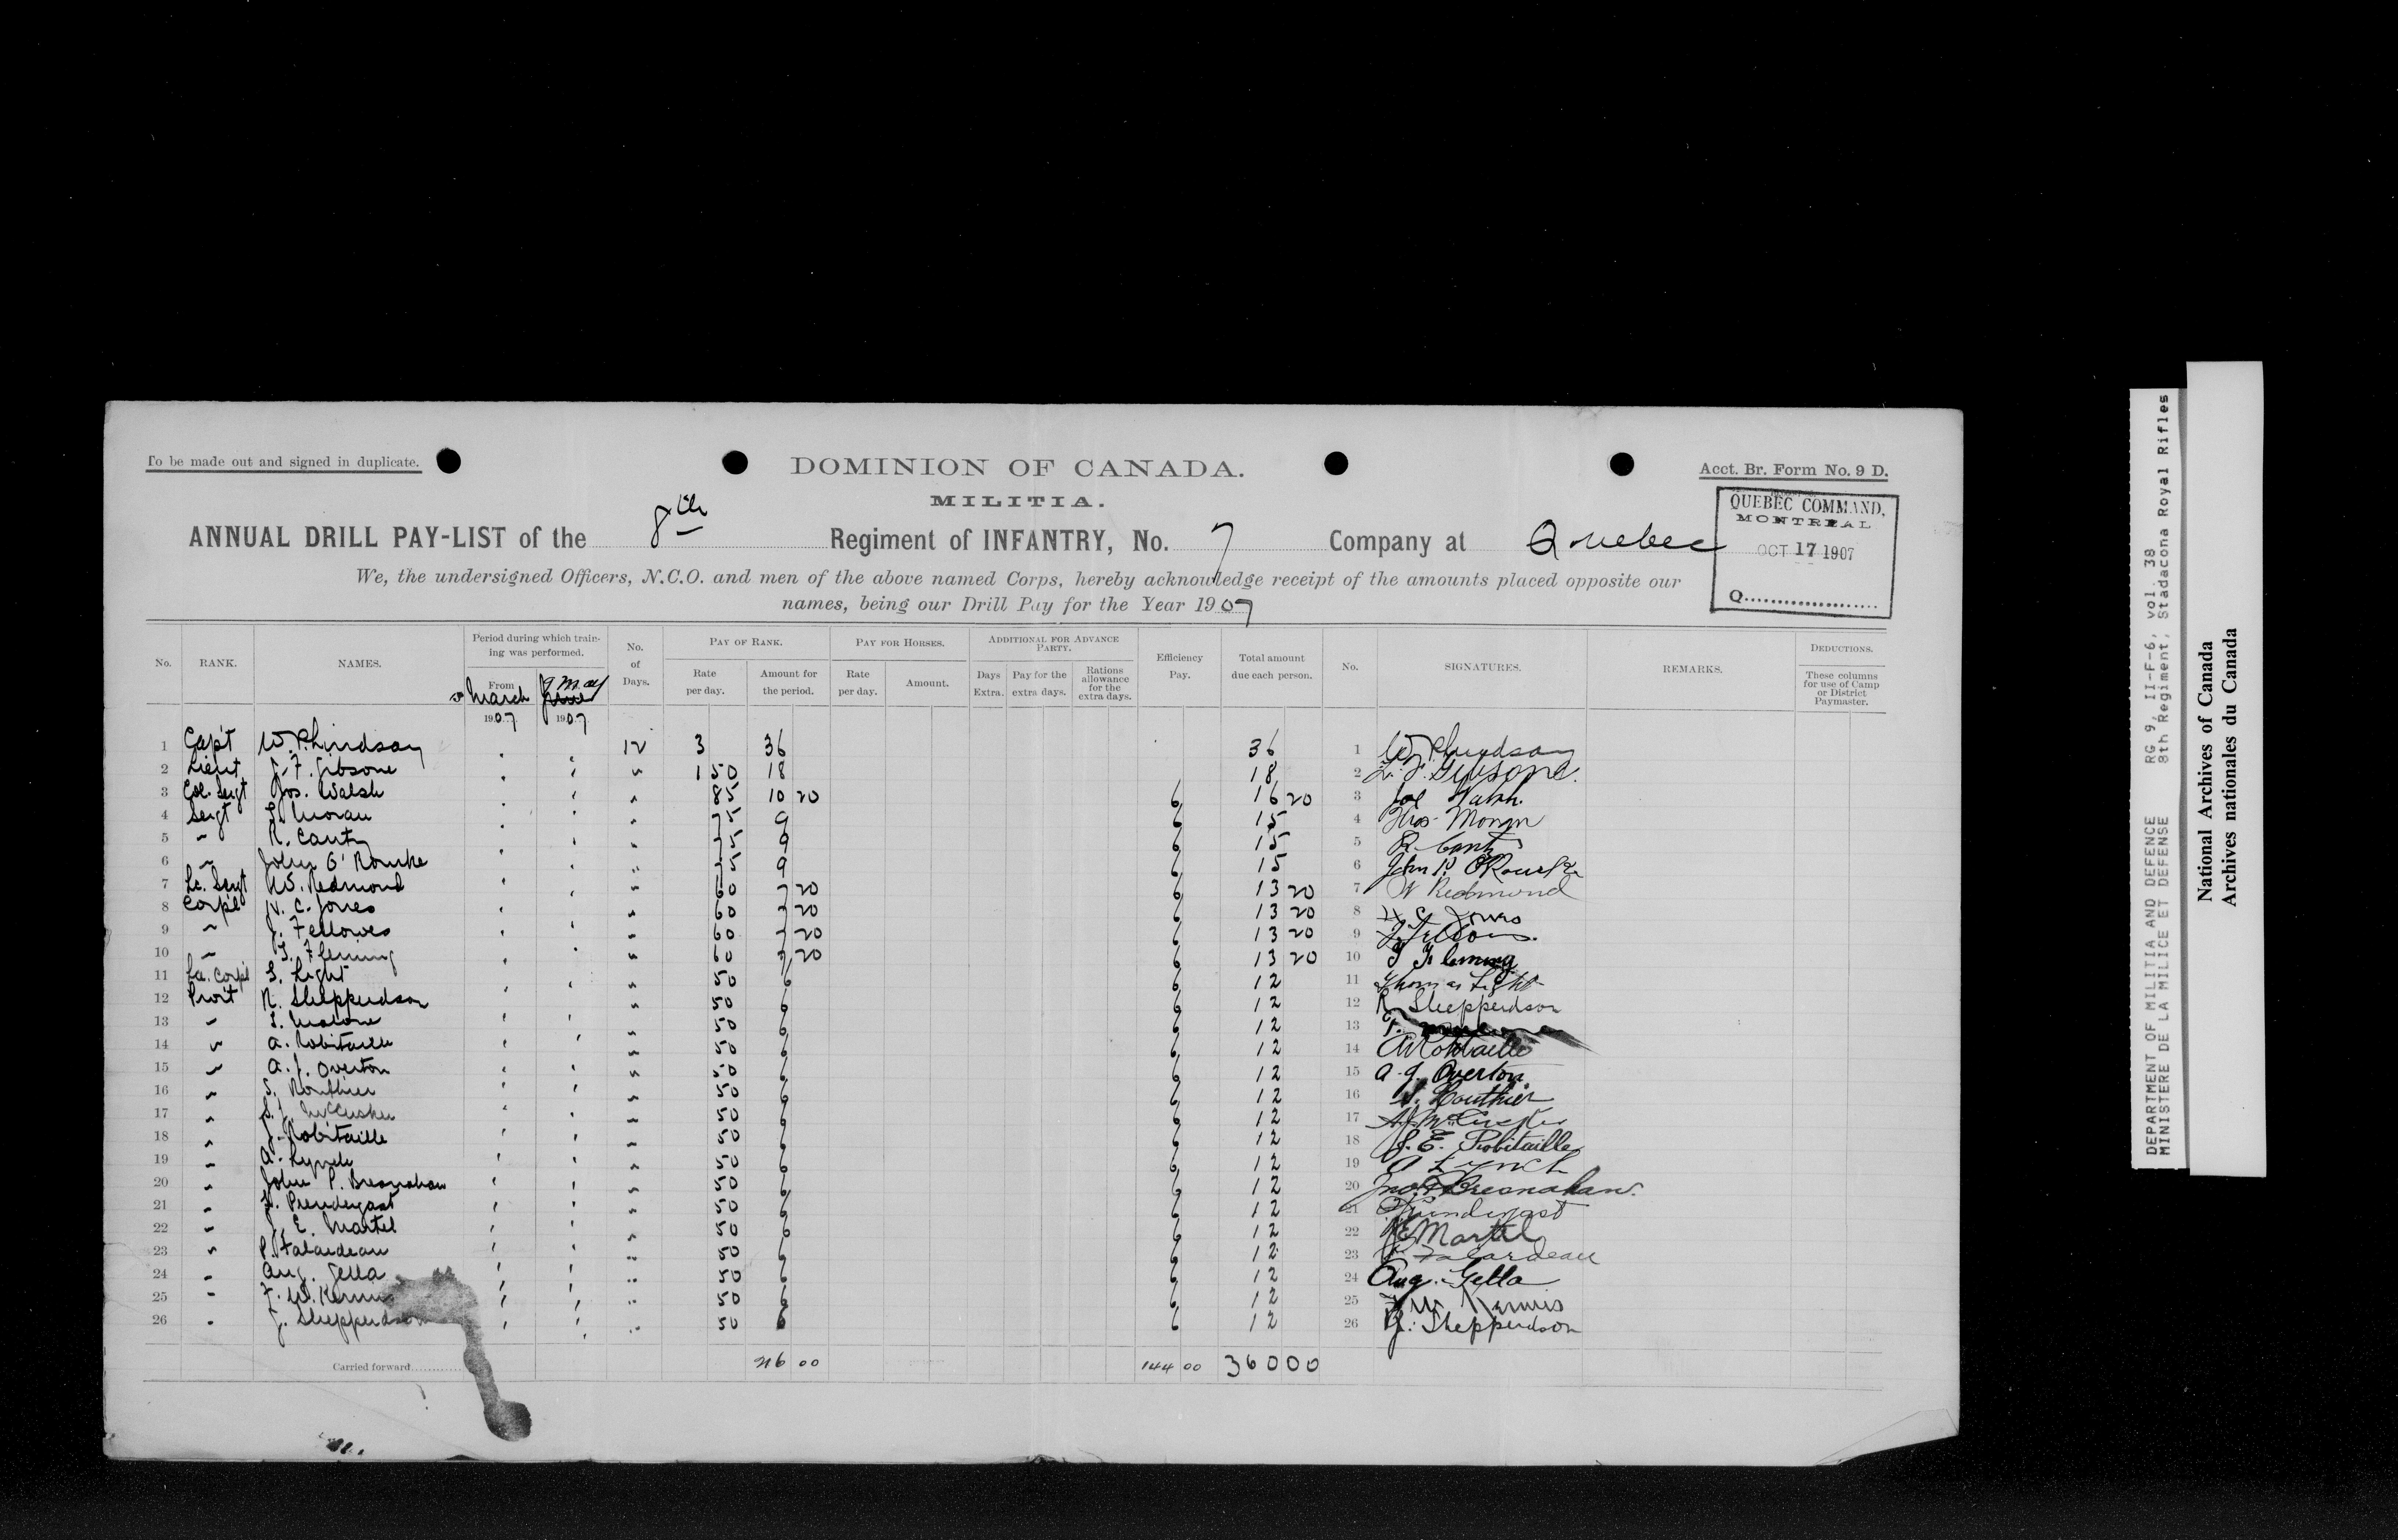 To be made out and signed in duplicate.
DOMINION OF CANADA.
Acct. Br. Form No. 9 D.
MILITIA.
QUEBEC COMMAND,
MONTREAL
OCT 17 1907
Q....................
ANNUAL DRILL PAY-LIST of the 8th Regiment of INFANTRY, No. 7 Company at Quebec
We, the undersigned Officers, N.C.O. and men of the above named Corps, hereby acknowledge receipt of the amounts placed opposite our
names, being our Drill Pay for the Year 1907
No. RANK. NAMES. Period during which training was performed. No. of Days. PAY OF RANK. PAY FOR HORSES. ADDITIONAL FOR ADVANCE PARTY. Efficiency Pay. Total amount due each person. No. SIGNATURES. REMARKS. DEDUCTIONS.
From March 1907 9 May 1907 Rate per day. Amount for the period. Rate per day. Amount. Days Extra. Pay for the extra days. Rations allowance for the extra days. These columns for use of Camp or District Paymaster.
1 Capt W. P. Lindsay 12 3 36 36 1 W P Lindsay
2 Lieut J. F. Gibsone " 1 50 18 18 2 Gibsone.
3 Col. Sergt Jos. Walsh " 85 10 20 6 16 20 3 Joe Walsh.
4 Sergt T. Moran " 75 9 6 15 4 Thos Moran
5 " R. Canty " 75 9 6 15 5 R. Canty
6 " John O'Rourke " 75 9 6 15 6 John P. O'Rourke
7 Lc. Sergt W. Redmond " 60 7 20 6 13 20 7 W Redmond
8 Corpl W. C. Jones " 60 7 20 6 13 20 8 W C Jones
9 " J. Fellowes " 60 7 20 6 13 20 9 J Fellows.
10 " T. Fleming " 60 7 20 6 13 20 10 T Fleming
11 La. Corpl T. Light " 50 6 6 12 11 Thomas Light
12 Privt R. Shepperdson " 50 6 6 12 12 R Shepperdson
13 " T. Malone " 50 6 6 12 13 T.
14 " A. Robitaille " 50 6 6 12 14 A Robitaille
15 " A. J. Overton " 50 6 6 12 15 A. J. Overton
16 " S. Routhier " 50 6 6 12 16 S. Routhier
17 " McCusker " 50 6 6 12 17 McCusker
18 " J. Robitaille " 50 6 6 12 18 J. E. Robitaille
19 " A. Lynch " 50 6 6 12 19 A Lynch
20 " John P. Bresnahan " 50 6 6 12 20 Jno. P Bresnahan.
21 " Prendergast " 50 6 6 12 21 Prindergast
22 " J. E. Martel " 50 6 6 12 22 J E Martel
23 " P. Falardeau " 50 6 6 12 23 P. Falardeau
24 " Aug. Gella " 50 6 6 12 24 Aug. Gella
25 " F. W. Kennis " 50 6 6 12 25 F W Kennis
26 " J. Shepperdson " 50 6 6 12 26 J. Shepperdson
Carried forward............ 216 00 144 00 360 00
DEPARTMENT OF MILITIA AND DEFENCE RG 9, II-F-6, vol. 38
MINISTERE DE LA MILICE ET DEFENSE 8th Regiment, Stadacona Royal Rifles
National Archives of Canada
Archives nationales du Canada